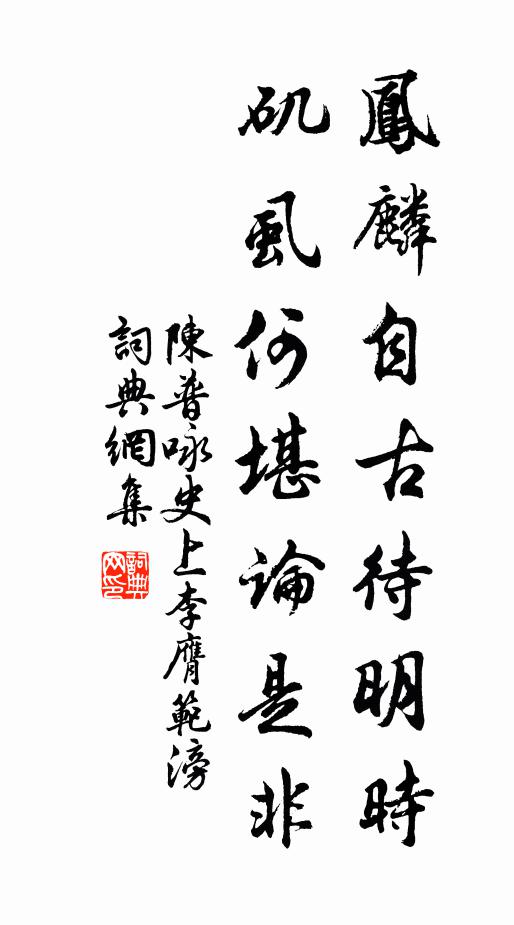 鳳麟自古待明時
矶虱何堪論是非
陳普咏史上李膺範滂
詞典網集
詞典網印